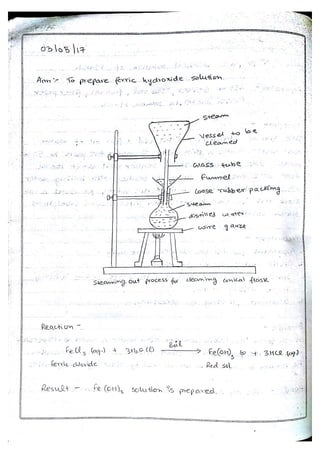 03/08/17
Aim :- To prepare ferric hydroxide solution.
steam
vessel to be
cleaned
Glass tube
Funnel
Loose rubber packing
steam
distilled water
wire gauze
Steaming out process for cleaning conical flask
Reaction -
FeCl3 (aq) + 3H2O (l) Boil → Fe(OH)3 (s) + 3HCl (aq)
Ferric chloride Red sol
Result - Fe(OH)3 solution is prepared.